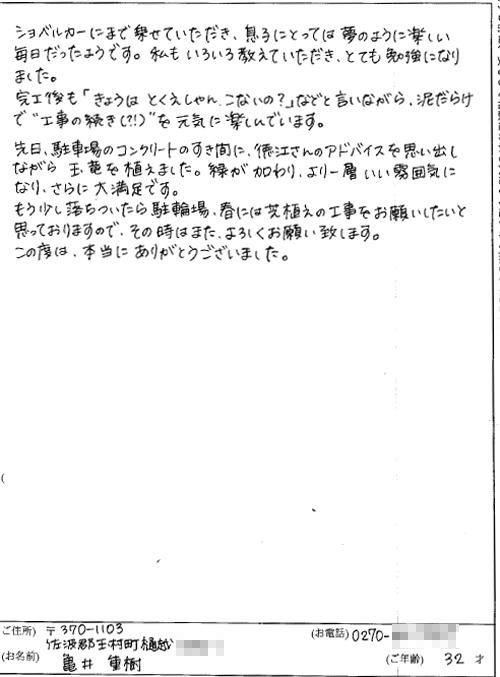 ショベルカーにまで乗せていただき、息子にとっては夢のように楽しい
毎日だったようです。私もいろいろ教えていただき、とても勉強になり
ました。
完工後も「きょうは とくえしゃん、こないの？」などと言いながら、泥だらけ
で“工事の続き(?!)”を元気に楽しんでいます。
先日、駐車場のコンクリートのすき間に、徳江さんのアドバイスを思い出し
ながら 玉竜を植えました。緑が加わり、より一層いい雰囲気に
なり、さらに大満足です。
もう少し落ちついたら駐輪場、春には芝植えの工事をお願いしたいと
思っておりますので、その時はまた、よろしくお願い致します。
この度は、本当にありがとうございました。
ご住所) 〒370-1103
佐波郡玉村町樋越
(お電話) 0270-
(お名前) 亀井 重樹
(ご年齢) 32 才